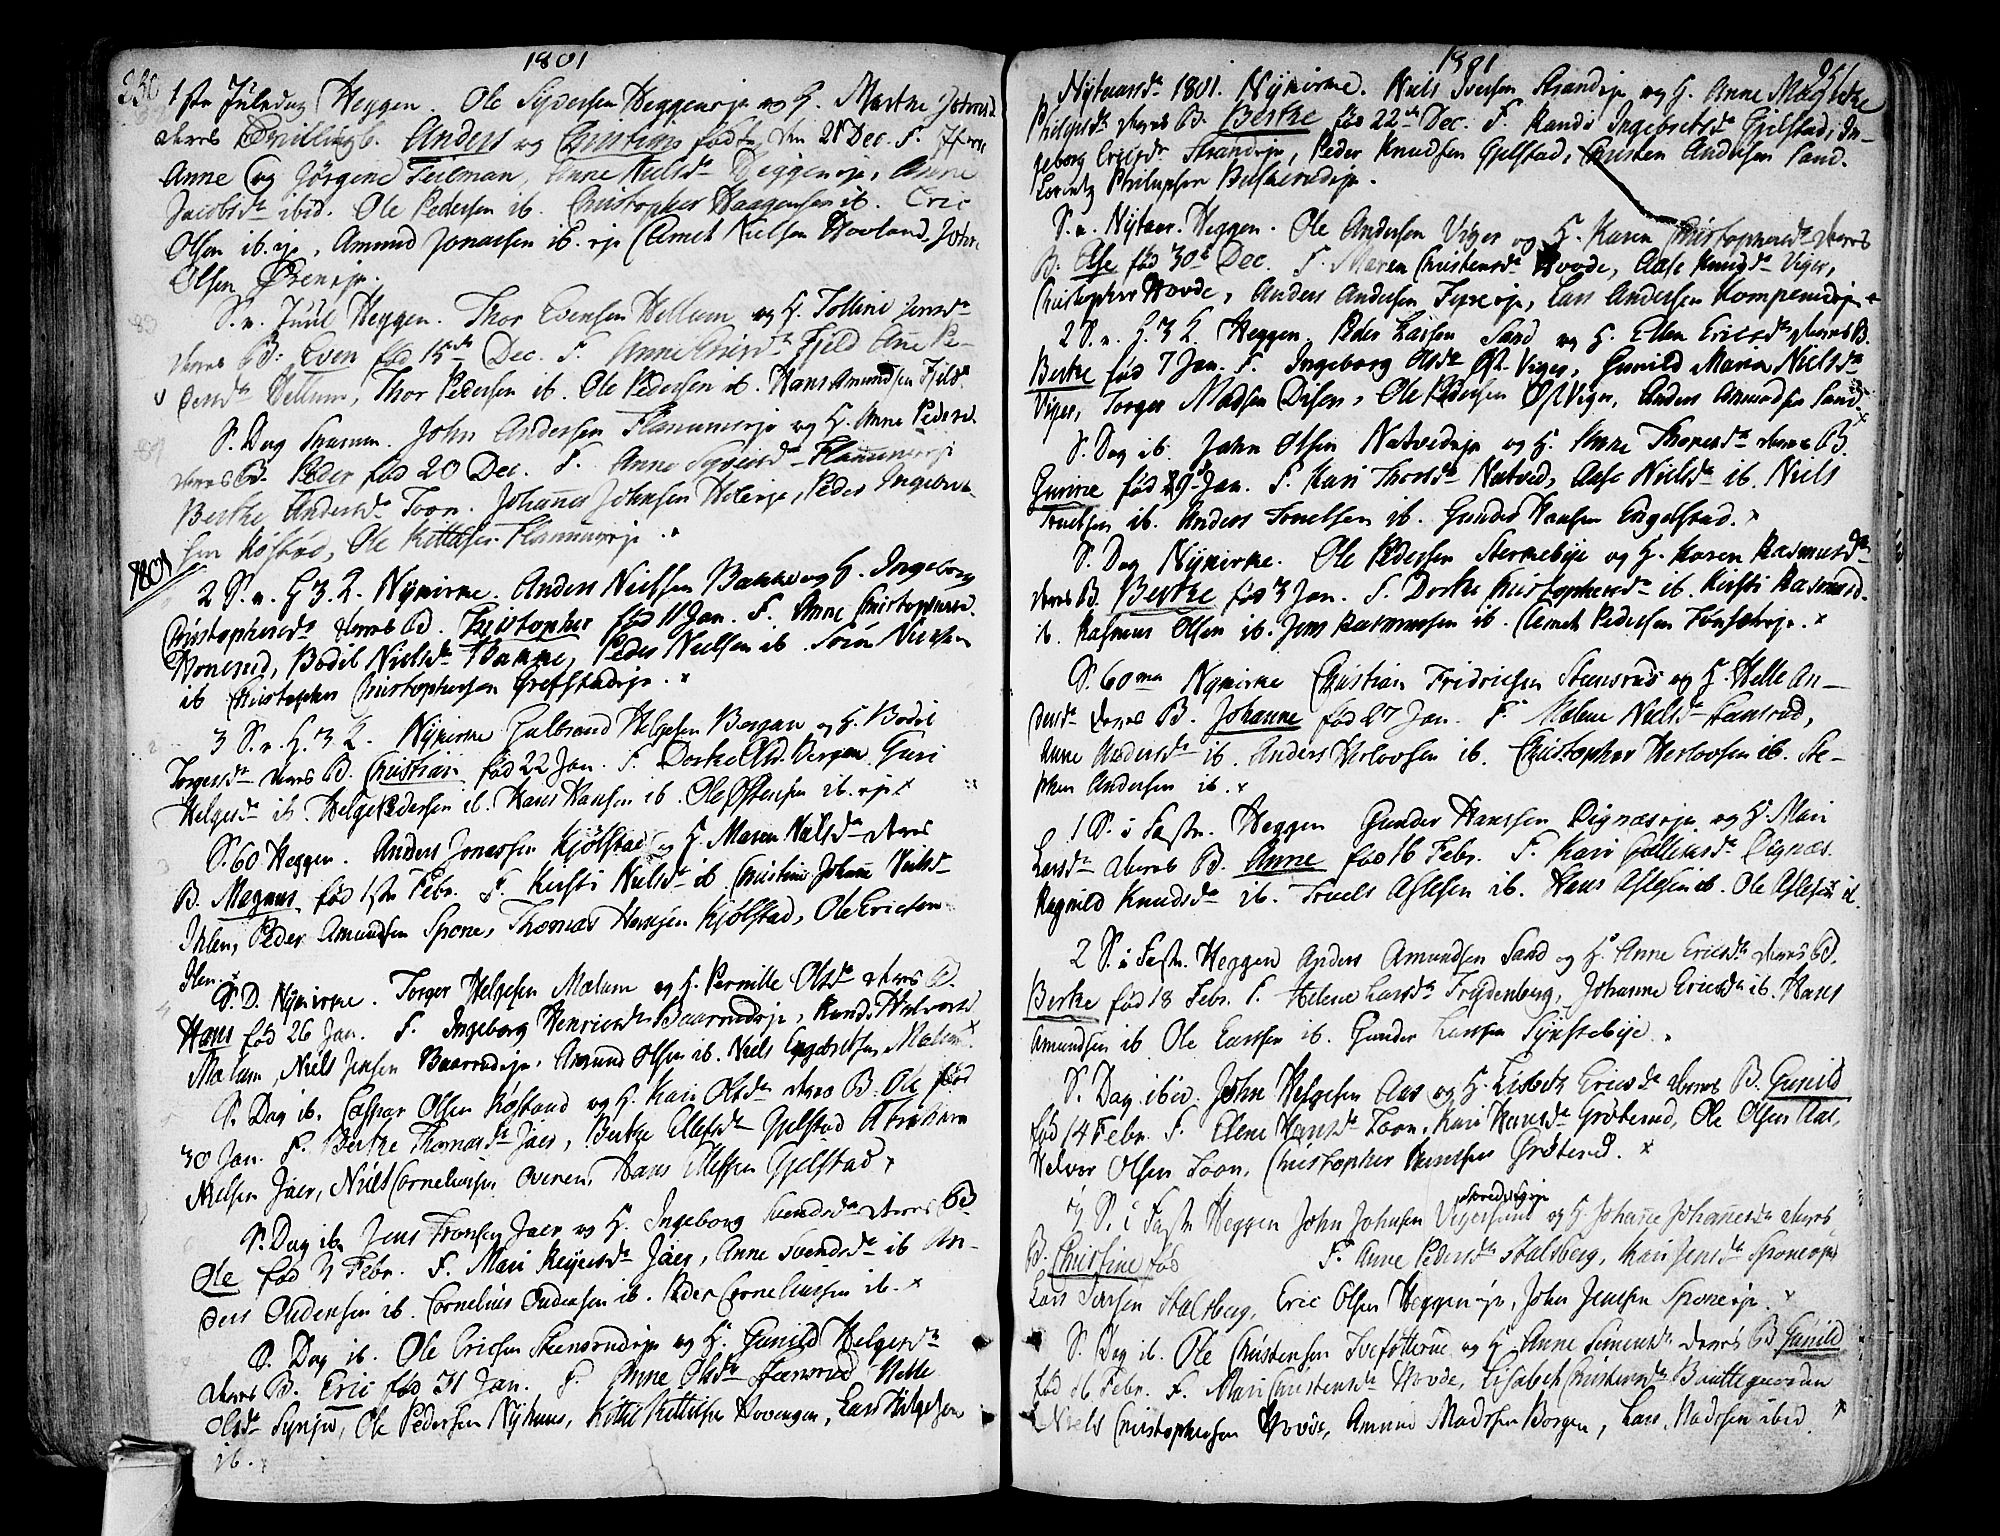 1801
1ste Juledag Heggen. Ole Sygersen Heggenseje og H. Marthe Johnsd.
deres Tvilling b. Anders og Christian født den 21 Dec. F.
Anne og Jørgine Feilman, Anne Nielsda Heggenseje, Anne
Jacobsda ibid. Ole Pedersen ib. Christopher Haagensen ib. Eric
Olsen ib. eje, Amund Jonassen ib. eje Clemet Nielsen Hovland, John
Olsen Ørenseje.
S. n. Juul Heggen. Thor Evensen Hellum og H. Tolline Jensda
deres B. Even fød 15de Dec. F. Anne Ericsda Fjeld Anne Pe-
dersda Hellum, Thor Pedersen ib. Ole Pedersen ib. Hans Amundsen Fjeld.
S. Dag Snarum. John Andersen Flannumseje og H. Anne Pedersd.
deres B. Peder fød 20 Dec. F. Anne Flannumseje
Berthe Andersda Toon. Johannes Johnsen Holeseje, Peder Ingebret-
sen Køstød, Ole Kittilsen Flannumseje.
1801
2 S. n. H 3 K. Nykirke. Anders Nielsen Bakke og H. Ingeborg
Christophersda deres B. Christopher fød 11 Jan. F. Anne Christophersd.
Honerud, Bodil Nielsda Bakke, Peder Nielsen ib. Søren Nielsen
ib Christopher Christophersen Grefstadeje.
3 S. n. H. 3 K. Nykirke Gulbrand Helgesen Bergan og H. Bodil
Torgersda deres B. Christian fød 22 Jan. F. Dorthe Olsd. Bergan Guri
Helgesda ib Helge Pedersen ib. Hans Hansen ib. Ole Østensen ib. eje
S. 60 Heggen. Anders Jonassen Kjølstad og H. Maren Nielsda deres
B. Magnus fød 1ste Febr. F. Kirsti Nielsda ib Christine Johane Nielsda
Ihlen, Peder Amundsen Spone, Thomas Hansen Kjølstad, Ole Ericsen
Ihlen.
S. D. Nykirke. Torger Helgesen Mælum og H. Pernille Olsda deres B.
Hans fød 26 Jan. F. Ingeborg Henricsda Baarrudeje, Rand. Halvorsd
Mælum, Niels Jensen Baarrudeje, Amund Olsen ib. Niels Engebretsen Mælum
S. Dag ib. Caspar Olsen Køstand og H. Kari Olsda deres B. Ole fød
30 Jan. F. Berthe Thomasda Jaer, Berthe Ellefsda Gjelstad Abraham
Nielsen Jaer, Niels Cornelinssen Overn, Hans Ellefsen Gjelstad
S. Dag ib. Jens Fronsen Jaer og H. Ingeborg Svendsda deres B
Ole fød 3 Febr. F. Mari Reyersda Jaer, Anne Svendsda ib An-
ders Audensen ib. Cornelius Audensen ib. Peder Corneliussen ib.
S. Dag ib. Ole Ericsen Steensrudeje og H. Gunild Helgesda
deres B. Eric fød 31 Jan. F. Anne Olsda Stensrud Helle
Olsda Synjø, Ole Pedersen Nyhuus, Kittil Kittilsen Hovengen, Lars Helgesen
ib.
1801
Nytaarsd. 1801. Nykirke. Niels Iversen Strandeje og H. Anne Margrethe
Philipsda deres B. Berthe fød 22de Dec. F. Randi Ingebretsda Gjelstad, In-
geborg Ericsda Strandeje, Peder Knudsen Gjelstad, Christen Andersen Sand.
Lorentz Philipsen Buskerudeje.
S. n. Nytaar. Heggen. Ole Andersen Viger og H. Karen Christophersda deres
B. Else fød 30te Dec. F. Maren Christensda Hovde, Aase Knudsda Viger,
Christopher Hovde, Anders Andersen Fyreeje, Lars Andersen Kompeneje
2 S. n. H. 3 K. Heggen. Peder Larsen Sand og H. Ellen Ericsda deres B.
Berthe fød 7 Jan. F. Ingeborg Olsda Øst Viger, Gunild Maria Nielsda
Viger, Torger Madsen Disen, Ole Pedersen Øst Viger, Anders Amundsen Sand
S. Dag ib. John Olsen Natvedeje og H. Anne Thoresda deres B.
Gurine fød 29 Jan. F. Kari Thorsda Natved, Aase Nielsda ib. Niels
Truelsen ib. Anders Truelsen ib. Gunder Hansen Engelstad.
S. Dag Nykirke. Ole Pedersen Sterkebye og H. Karen Rasmusda
deres B. Berthe fød 3 Jan. F. Dorthe Christophersda ib. Kirsti Rasmusd.
ib. Rasmus Olsen ib. Jens Rasmussen ib. Clemet Pedersen Fonsetseje.
S. 60ma Nykirke Christian Fridricsen Steensrud og H. Helle An-
dersda deres B. Johanne fød 27 Jan. F. Malene Nielsda Stensrud,
Anne Andersda ib. Anders Herlovsen ib. Christopher Herlovsen ib. Ste-
phen Andersen ib.
1 S. i Fastn. Heggen Gunder Hanssen Digneseje og H. Mari
Larsda deres B. Anne fød 16 Febr. F. Kari Gulliksda Dignæs
Ragnild Knudsda ib. Truels Aslesen ib. Hans Aslesen ib. Ole Aslesen ib.
2 S. i Fastn. Heggen Anders Amundsen Sand og H. Anne Ericsda deres B.
Berthe fød 18 Febr. F. Helene Larsda Frydenberg, Johanne Ericsda ib. Hans
Amundsen ib Ole Larssen ib. Gunder Larssen Synstebye.
S. Dag ibid. John Helgesen Aas og H. Lisbeth Ericsda deres B. Gunild
fød 14 Febr. F. Elene Hansda Toon, Kari Hansda Grøterud, Ole Olsen Aas,
Halvor Olsen Toon, Christopher Hanssen Grøterud.
3 S. i Fastn Heggen John Johnsen og H. Johanne Johannesda deres
B. Christine fød F. Anne Pedersda Stalsberg, Kari Jensda Sponeeje
Lars Iversen Stalsberg, Eric Olsen Heggenseje, John Jensen Sponeeje.
S. Dag ib. Ole Christensen Tvefotterne og H Anne Simensda deres B Gunild
fød 16 Febr. F. Mari Christensda Hovde, Lisabeth Christensda
Niels Christophersen Hovde, Amund Madssen Borgen, Lars Madssen ibid.